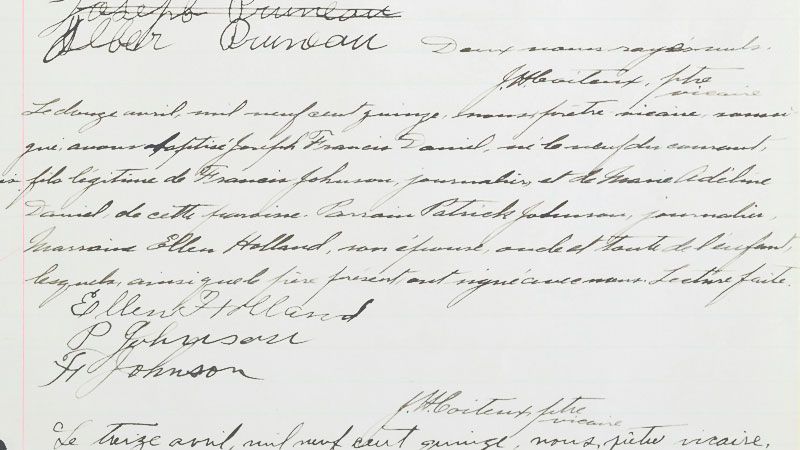 Joseph Bruneau
Alber Bruneau Deux noms rayés nuls.
J.H. Coiteux, ptre
vicaire
Le douze avril, mil neuf cent quinze, nous, prêtre vicaire, soussi-
gné, avons baptisé Joseph Francis Daniel, né le neuf du courant,
fils légitime de Francis Johnson, journalier, et de Marie Adélme
Daniel, de cette paroisse. Parrain Patrick Johnson, journalier,
Marraine Ellen Holland, son épouse, oncle et tante de l'enfant,
lesquels, ainsi que le père présent, ont signé avec nous. Lecture faite.
Ellen Holland
P Johnson
F Johnson
J.H. Coiteux, ptre
vicaire
Le treize avril, mil neuf cent quinze, nous, prêtre vicaire,